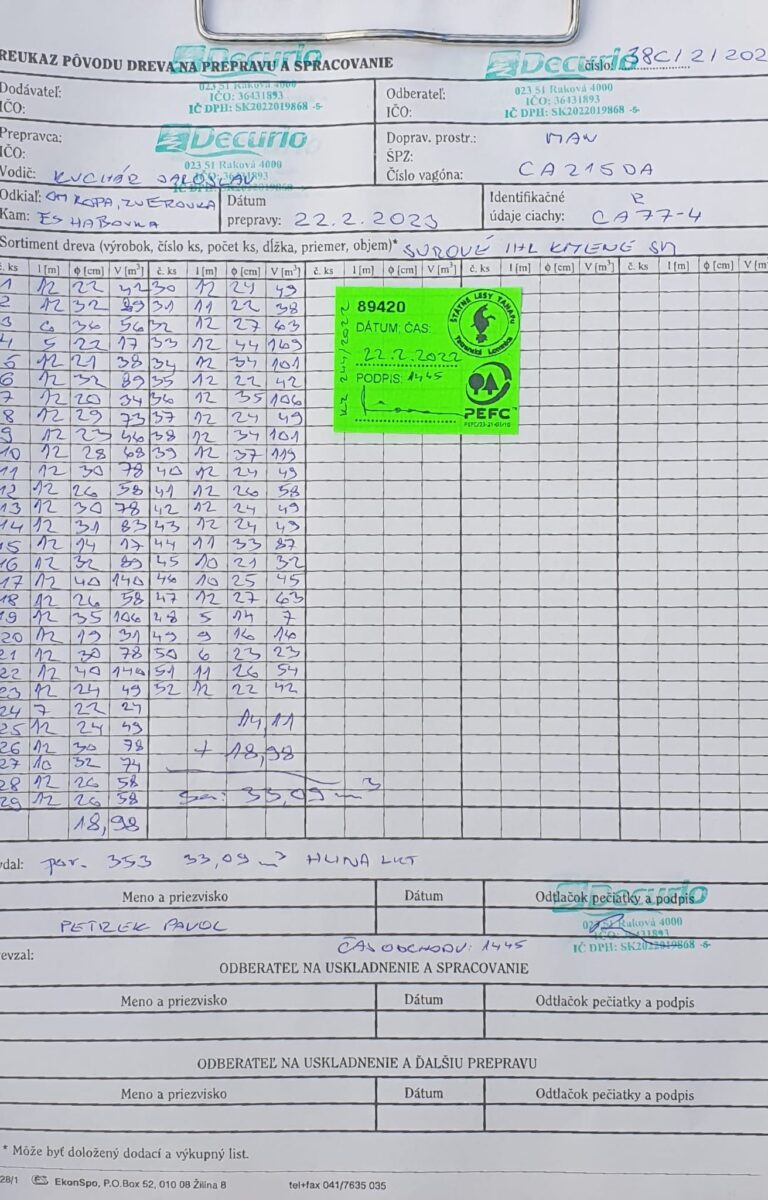 REUKAZ PÔVODU DREVA NA PREPRAVU A SPRACOVANIE
Decurio
023 51 Raková 4000
IČO: 36431893
IČ DPH: SK2022019868 -5-
Decurio
číslo: 38C/2/202
023 51 Raková 4000
IČO: 36431893
IČ DPH: SK2022019868 -5-
Dodávateľ:
IČO:
Odberateľ:
IČO:
Prepravca:
IČO:
Decurio
023 51 Raková 4000
IČO: 36431893
IČ DPH: SK2022019868 -5-
Vodič: KUCHÁR
Doprav. prostr.: MAN
ŠPZ:
Číslo vagóna: CA215DA
Odkiaľ: OM ROPA, ZVEROVKA
Kam: ES HABOVKA
Dátum
prepravy: 22.2.2023
Identifikačné
údaje ciachy: R
CA77-4
Sortiment dreva (výrobok, číslo ks, počet ks, dĺžka, priemer, objem)* SUROVÉ IHL KMENE SM
č. ks l [m] ϕ [cm] V [m³] č. ks l [m] ϕ [cm] V [m³] č. ks l [m] ϕ [cm] V [m³] č. ks l [m] ϕ [cm] V [m³] č. ks l [m] ϕ [cm] V [m³]
1 12 22 42 30 12 24 49
2 12 32 89 31 11 22 38
3 6 36 56 32 12 27 63
4 5 22 17 33 12 44 169
5 12 21 38 34 12 34 101
6 12 32 89 35 12 22 42
7 12 20 34 36 12 35 106
8 12 29 73 37 12 24 49
9 12 23 46 38 12 34 101
10 12 28 68 39 12 37 119
11 12 30 78 40 12 24 49
12 12 26 58 41 12 26 58
13 12 30 78 42 12 24 49
14 12 31 83 43 12 24 49
15 12 14 17 44 11 33 87
16 12 32 89 45 10 21 32
17 12 40 140 46 10 25 45
18 12 26 58 47 12 27 63
19 12 35 106 48 5 14 7
20 12 19 31 49 9 16 16
21 12 30 78 50 6 23 23
22 12 40 140 51 11 26 54
23 12 24 49 52 12 22 42
24 7 22 24
25 12 24 49 14,11
26 12 30 78 + 18,98
27 10 32 74
28 12 26 58
29 12 26 58 33,09 m³
18,98
89420
DÁTUM, ČAS:
22.2.2022
PODPIS: 1445
ŠTÁTNE LESY TANAPU
Tatranská Lomnica
PEFC
dal: por. 353 33,09 m³ HLINA LKT
Meno a priezvisko Dátum Odtlačok pečiatky a podpis
Decurio
023 51 Raková 4000
IČO: 36431893
IČ DPH: SK2022019868 -5-
PETREK PAVOL
evzal:
ČAS ODCHODU: 1445
ODBERATEĽ NA USKLADNENIE A SPRACOVANIE
Meno a priezvisko Dátum Odtlačok pečiatky a podpis
ODBERATEĽ NA USKLADNENIE A ĎALŠIU PREPRAVU
Meno a priezvisko Dátum Odtlačok pečiatky a podpis
* Môže byť doložený dodací a výkupný list.
28/1 EkonSpo, P.O.Box 52, 010 08 Žilina 8 tel+fax 041/7635 035